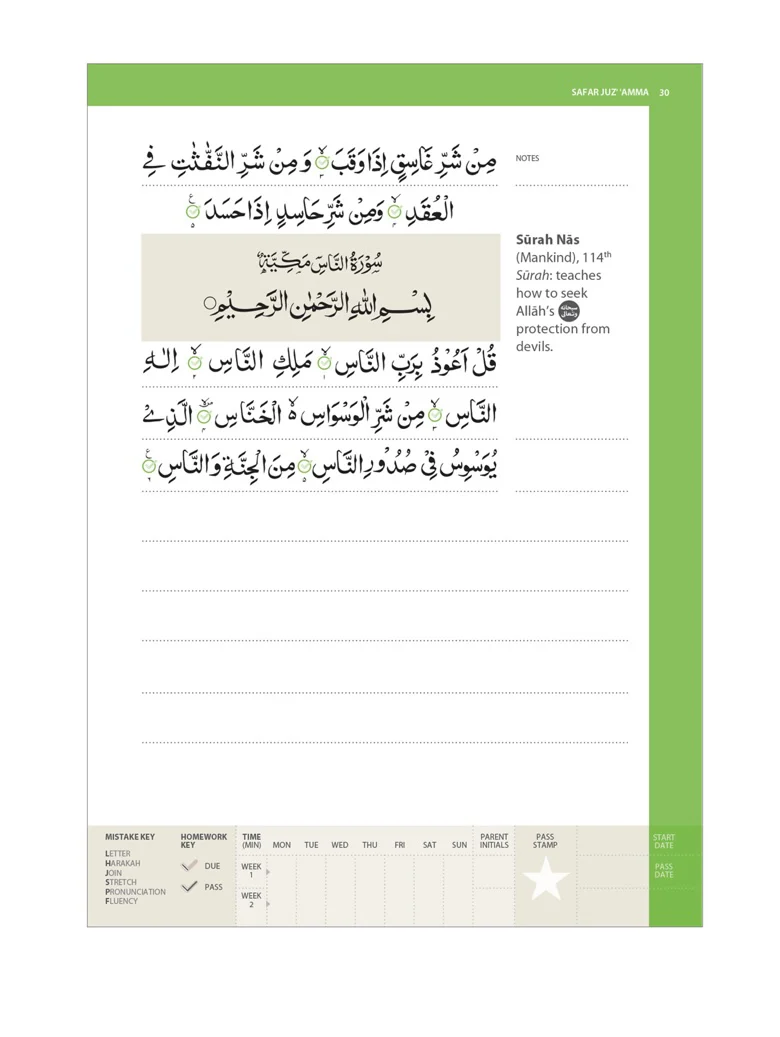 SAFAR JUZ' 'AMMA 30
مِنْ شَرِّ غَاسِقٍ اِذَا وَقَبَ ۙ وَمِنْ شَرِّ النَّفّٰثٰتِ فِي
الْعُقَدِ ۙ وَمِنْ شَرِّ حَاسِدٍ اِذَا حَسَدَ
سُوْرَةُ النَّاسِ مَكِّيَّةٌ
بِسْمِ اللّٰهِ الرَّحْمٰنِ الرَّحِيْمِ
قُلْ اَعُوْذُ بِرَبِّ النَّاسِ ۙ مَلِكِ النَّاسِ ۙ اِلٰهِ
النَّاسِ ۙ مِنْ شَرِّ الْوَسْوَاسِ ۙ الْخَنَّاسِ ۖ الَّذِيْ
يُوَسْوِسُ فِيْ صُدُوْرِ النَّاسِ ۙ مِنَ الْجِنَّةِ وَالنَّاسِ
NOTES
Sūrah Nās
(Mankind), 114th
Sūrah: teaches
how to seek
Allāh's سبحانه وتعالى
protection from
devils.
MISTAKE KEY
LETTER
HARAKAH
JOIN
STRETCH
PRONUNCIATION
FLUENCY
HOMEWORK
KEY
DUE
PASS
TIME
(MIN) MON TUE WED THU FRI SAT SUN
WEEK
1
WEEK
2
PARENT
INITIALS
PASS
STAMP
START
DATE
PASS
DATE